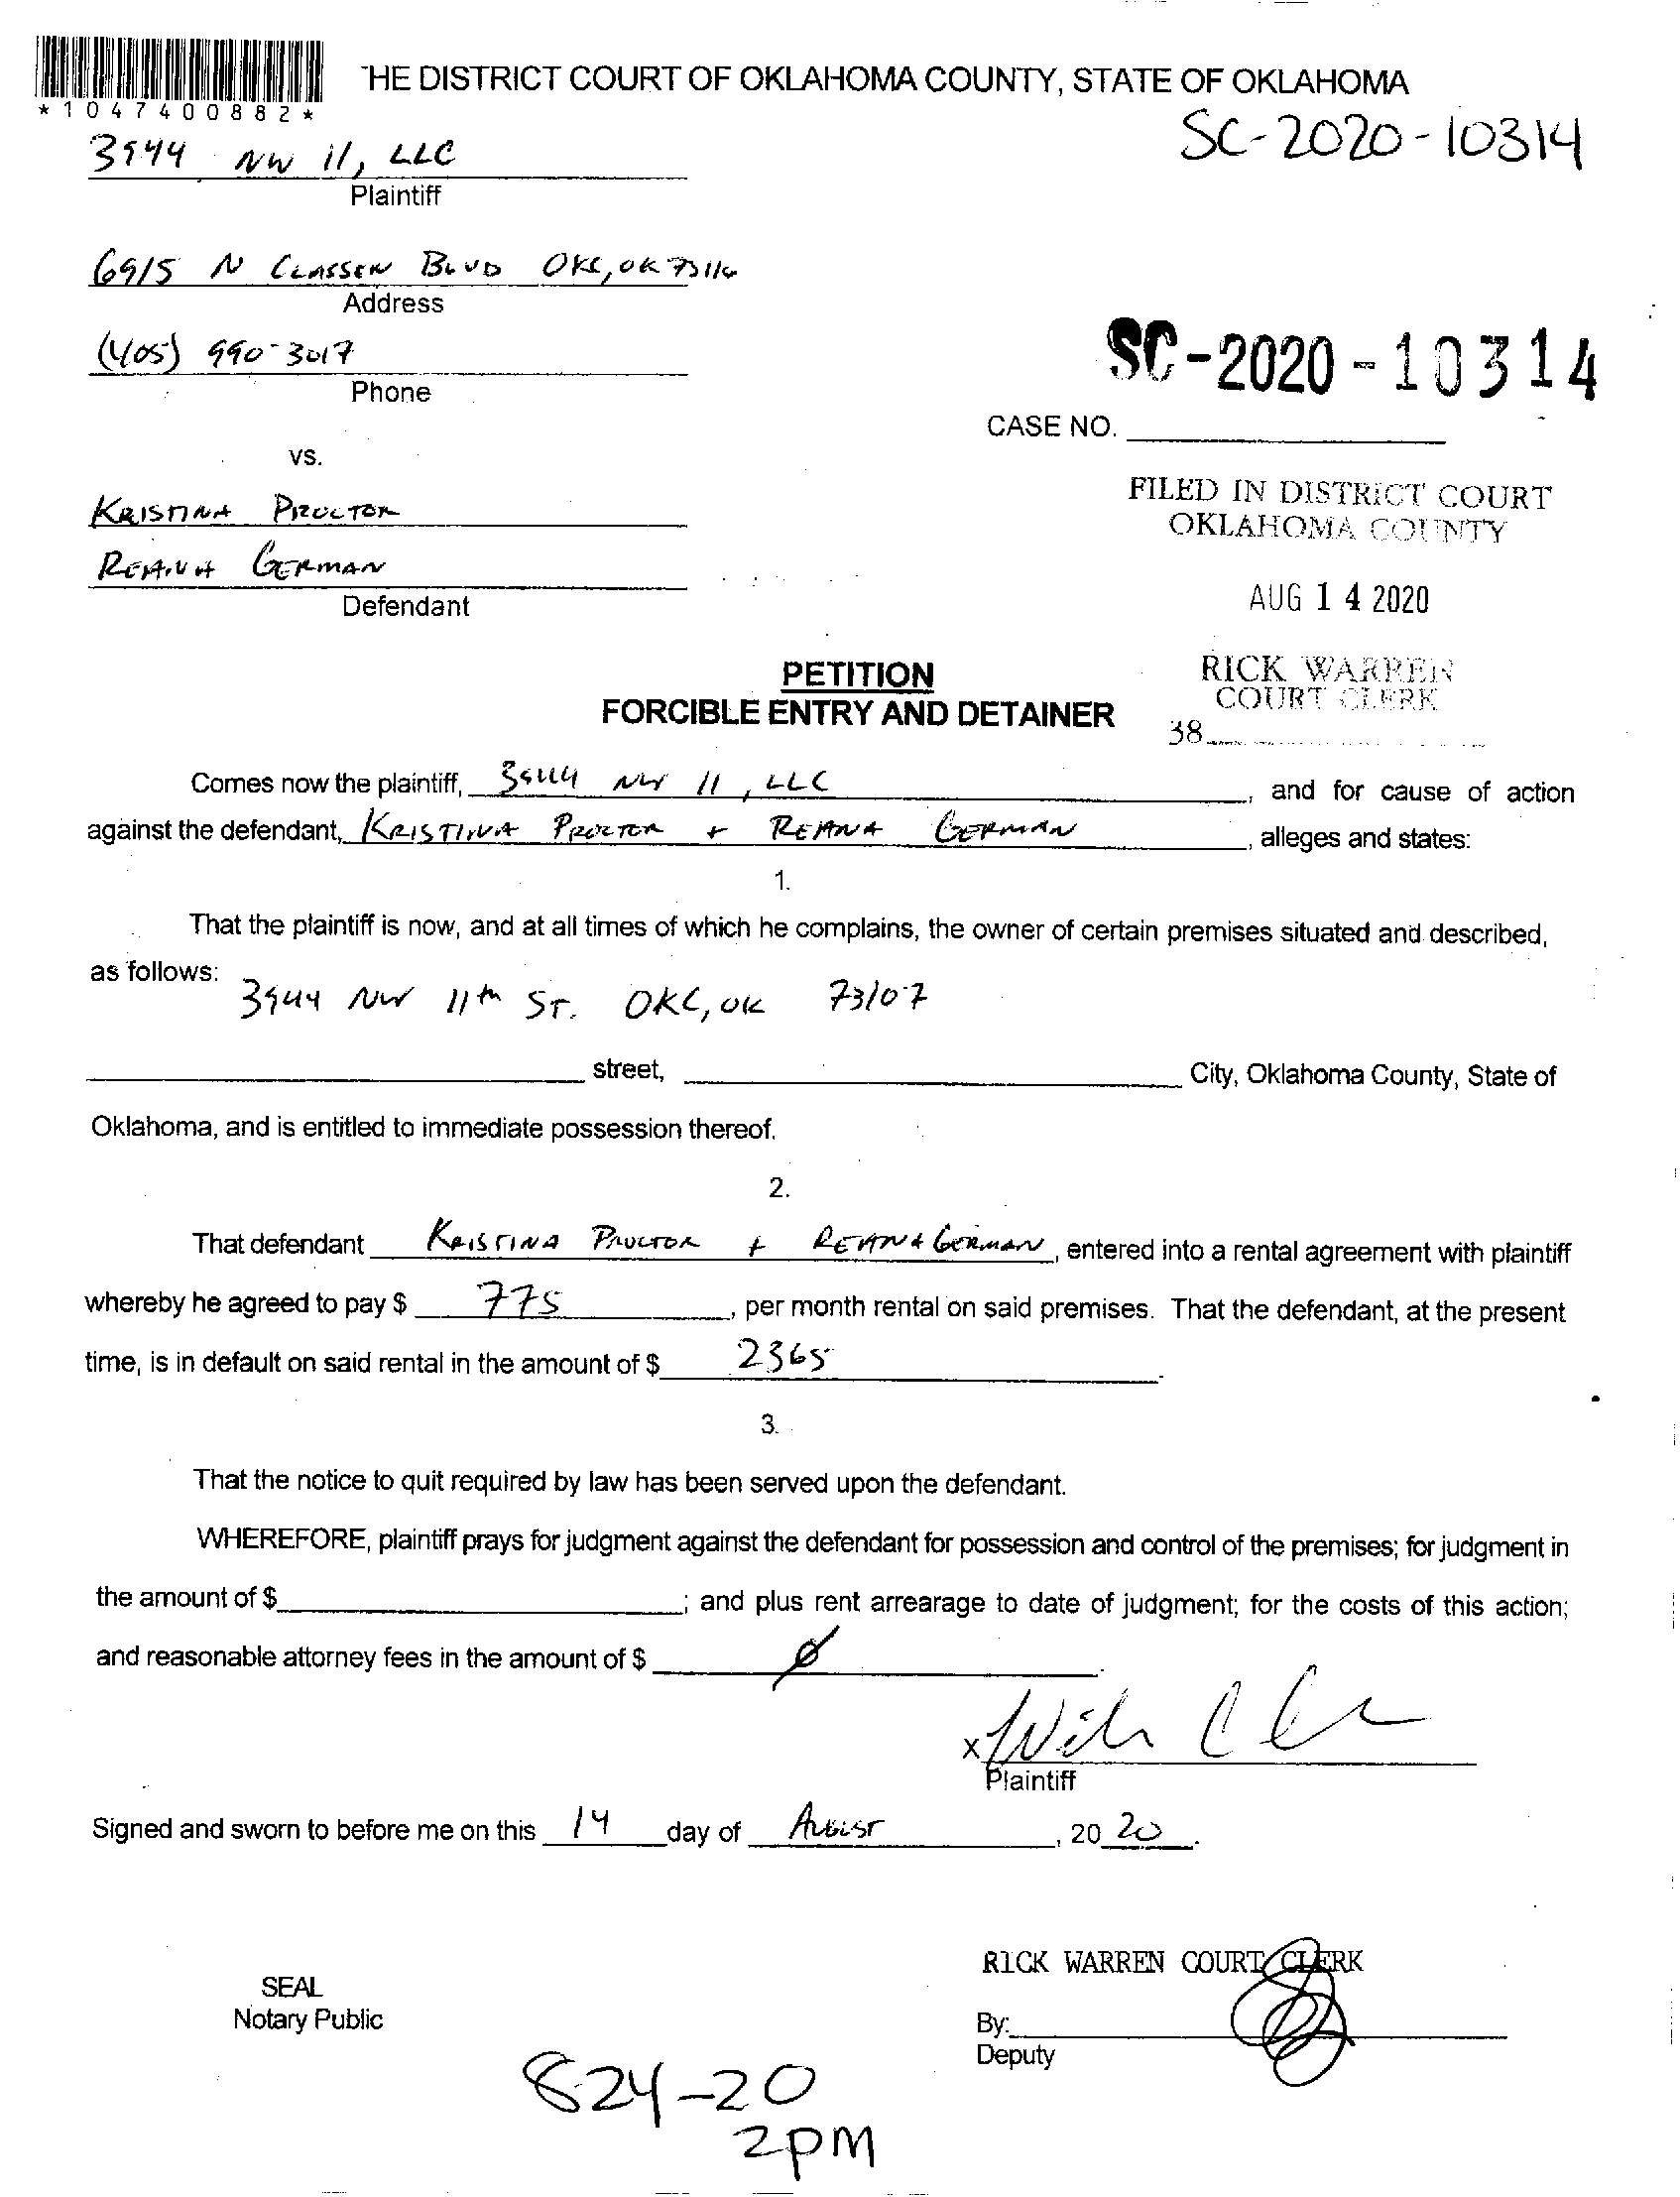 THE DISTRICT COURT OF OKLAHOMA COUNTY, STATE OF OKLAHOMA
*1047400882*
SC-2020-10314
3944 NW 11, LLC
Plaintiff
6915 N CLASSEN BLVD OKC, OK 73116
Address
(405) 990-3017
Phone
SC-2020-10314
CASE NO.
vs.
FILED IN DISTRICT COURT
OKLAHOMA COUNTY
KRISTINA PROCTOR
REANA GERMAN
Defendant
AUG 14 2020
PETITION
FORCIBLE ENTRY AND DETAINER
RICK WARREN
COURT CLERK
38
Comes now the plaintiff, 3944 NW 11, LLC, and for cause of action
against the defendant, KRISTINA PROCTOR + REANA GERMAN, alleges and states:
1.
That the plaintiff is now, and at all times of which he complains, the owner of certain premises situated and described,
as follows:
3944 NW 11th ST. OKC, OK 73107
street, City, Oklahoma County, State of
Oklahoma, and is entitled to immediate possession thereof.
2.
That defendant KRISTINA PROCTOR + REANA GERMAN, entered into a rental agreement with plaintiff
whereby he agreed to pay $ 775, per month rental on said premises. That the defendant, at the present
time, is in default on said rental in the amount of $ 2365.
3.
That the notice to quit required by law has been served upon the defendant.
WHEREFORE, plaintiff prays for judgment against the defendant for possession and control of the premises; for judgment in
the amount of $; and plus rent arrearage to date of judgment; for the costs of this action;
and reasonable attorney fees in the amount of $ Ø
X
Plaintiff
Signed and sworn to before me on this 14 day of AUGUST, 2020.
RICK WARREN COURT CLERK
SEAL
Notary Public
By:
Deputy
824-20
2PM